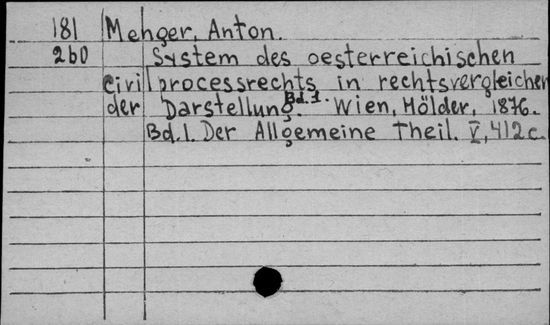 181 Menger, Anton.
260 System des oesterreichischen
civilprocessrechts in rechtsvergleichen
der Darstellung. Bd.1. Wien, Hölder, 1876.
Bd.1. Der Allgemeine Theil. V, 412 c.